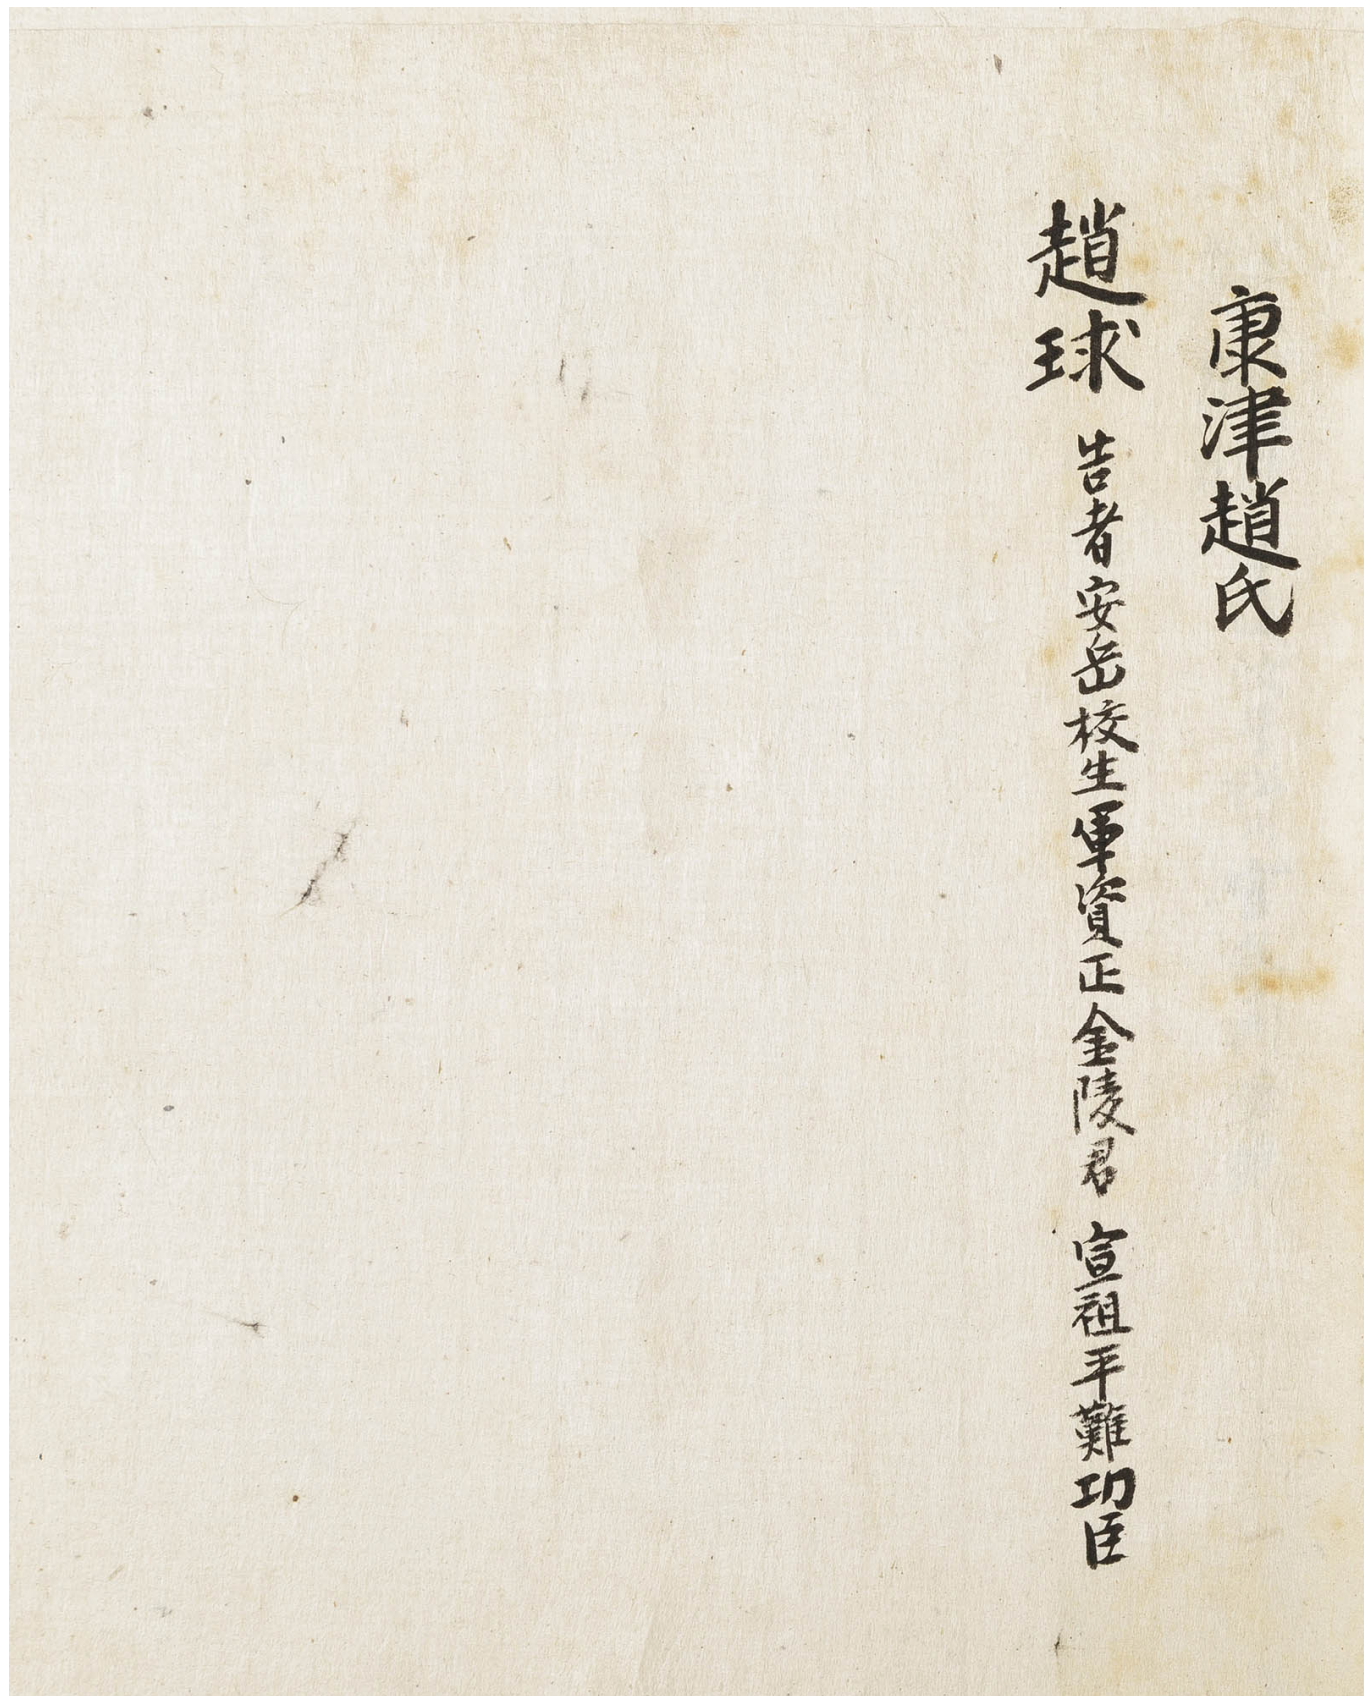 康津趙氏
趙球 告者安岳校生軍資正金陵君 宣祖平難功臣